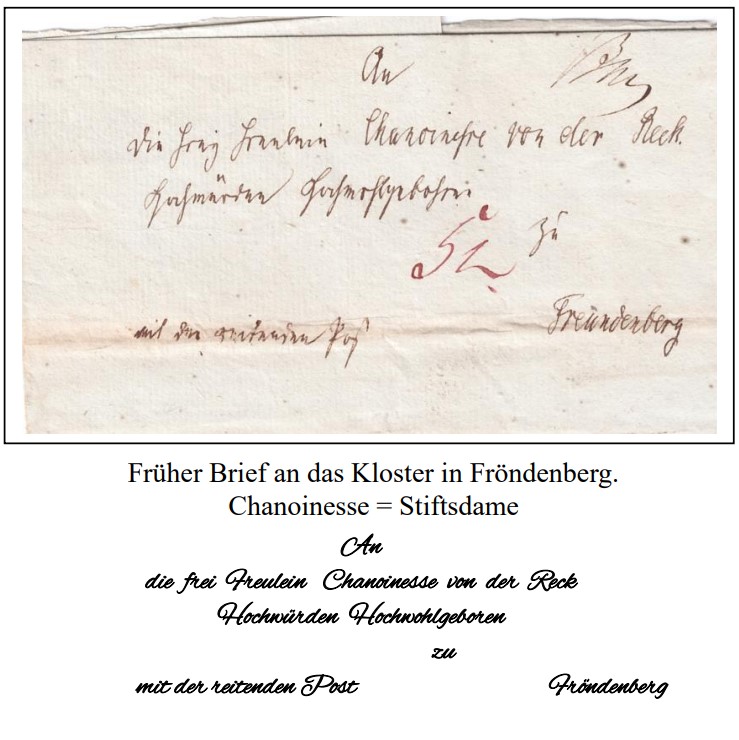 An
die frey Freulein Chanoinesse von der Reck.
Hochwürden Hochwohlgebohren
zu
mit der reitenden Post
Freündenberg
Früher Brief an das Kloster in Fröndenberg.
Chanoinesse = Stiftsdame
An
die frei Freulein Chanoinesse von der Reck
Hochwürden Hochwohlgeboren
zu
mit der reitenden Post Fröndenberg